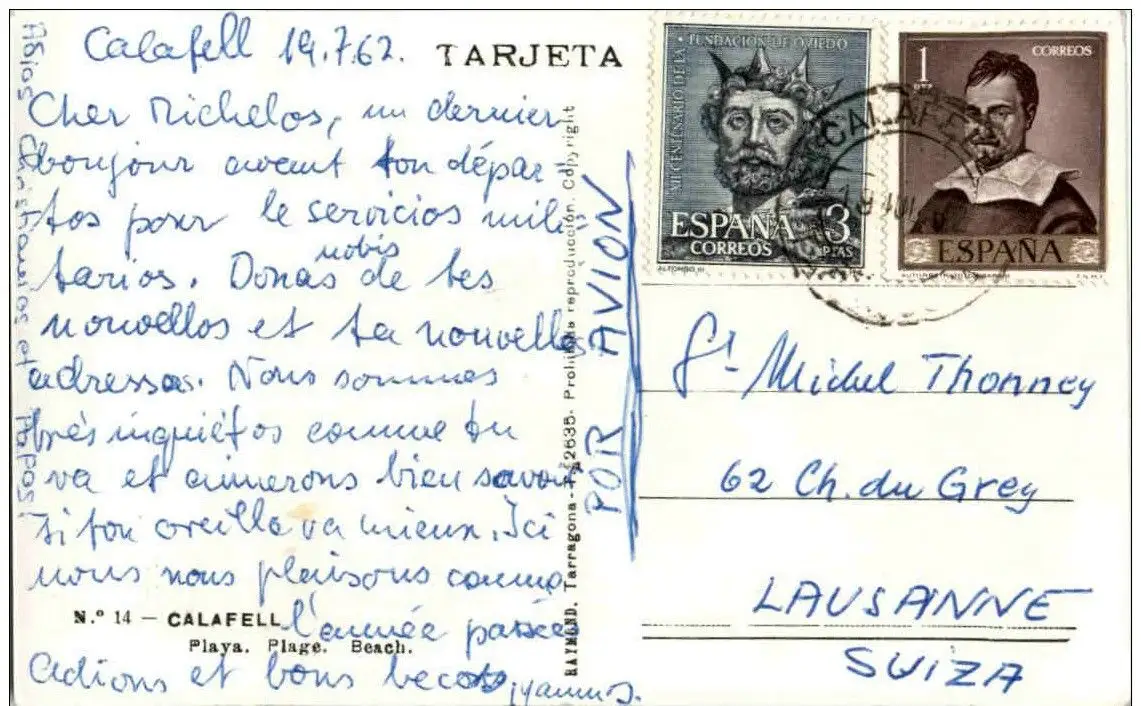 Calafell 19.7.62.
TARJETA
Cher Michelos, un dernier
bonjour avant ton dépar=
tos pour le servicios mili=
tarios. Donas nobis de tes
nouvellos et ta nouvelles
adressas. Nous sommes
très inquiétos comme tu
va et aimerons bien savoir
si ton oreilla va mieux. Ici
nous nous plaisons comma
l'année passées
Adions et bons becots
Adios
Christianos et
Papos!
N.º 14 — CALAFELL
Playa. Plage. Beach.
RAYMOND. Tarragona - F.A 2635. Prohibida reproducción. Copyright
POR AVION
XII CENTENARIO DE LA
· FUNDACION DE OVIEDO
ESPAÑA 3
CORREOS PTAS
ALFONSO III
1
PTA
CORREOS
ESPAÑA
F.N.M.T.
CALAFELL
Michel Thonney
62 Ch. du Grey
LAUSANNE
SUIZA